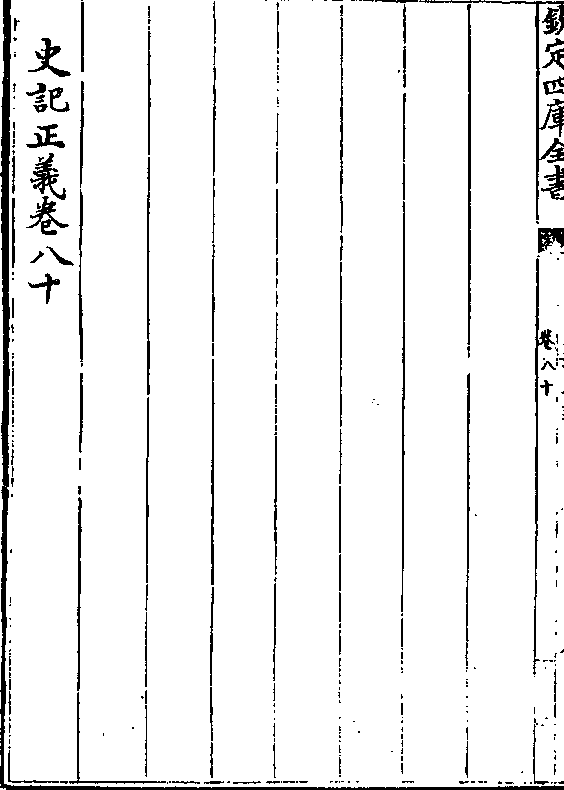 欽定四庫全書
卷八十
史記正義卷八十